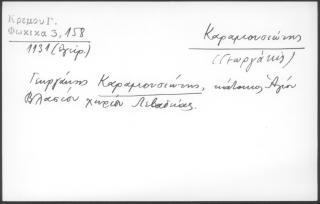 Κρέμου Γ.
Φωκικα 3, 158
1131 (χειρ.)
Καραμουσιώτης
(Γεωργάκις)
Γεωργάκης Καραμουσιώτης, κάτοικος Ἁγίου
Βλασίου χωρίου Λεβαδείας.